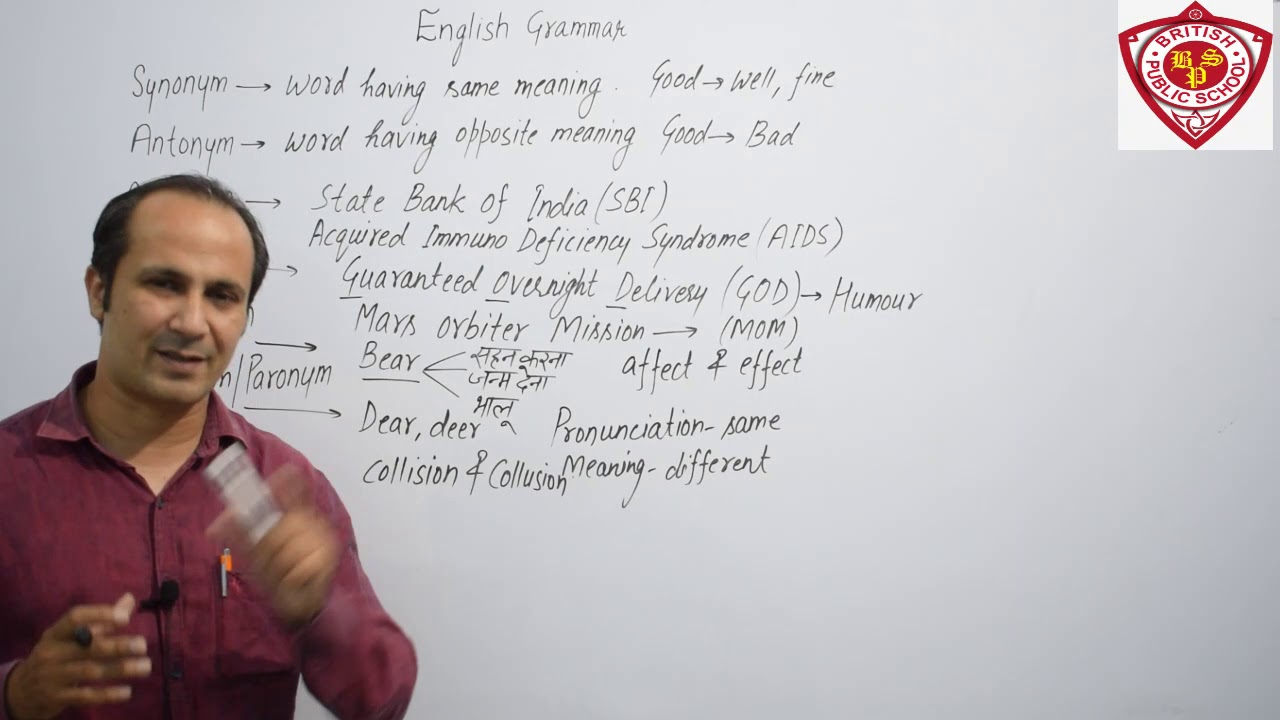 English Grammar
Synonym → word having same meaning. Good → well, fine
Antonym → word having opposite meaning Good → Bad
→ State Bank of India (SBI)
Acquired Immuno Deficiency Syndrome (AIDS)
→ Guaranteed Overnight Delivery (GOD) → Humour
Mars orbiter Mission → (MOM)
→ Bear सहन करना affect & effect
/Paronym जन्म देना
भालू
→ Dear, deer Pronunciation - same
collision & Collusion Meaning - different
BRITISH
BPS
PUBLIC SCHOOL